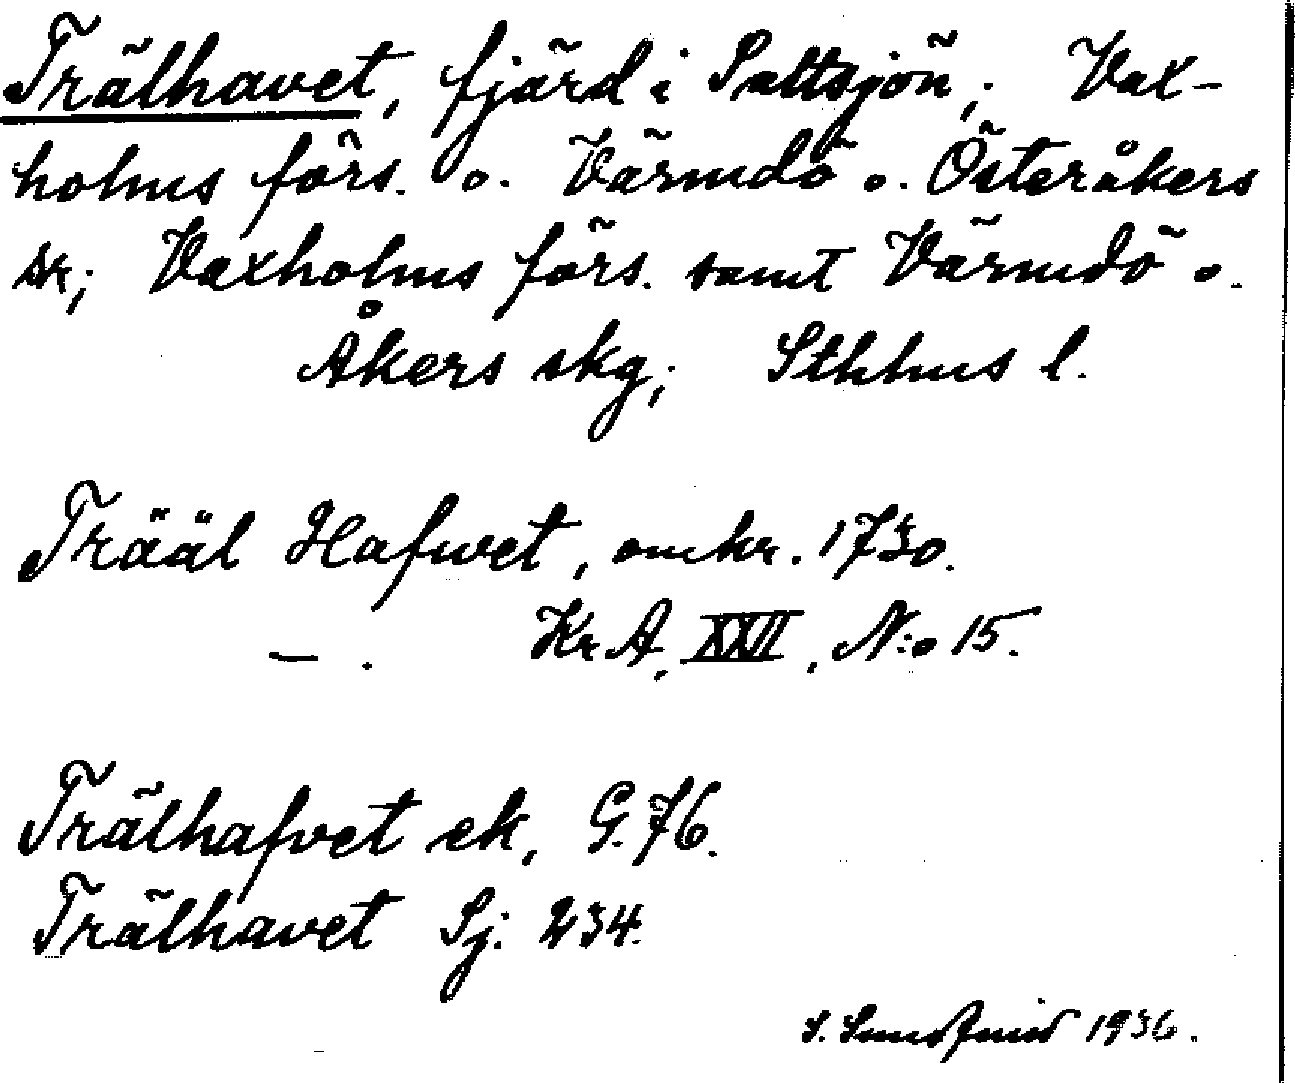 Trälhavet, fjärd i Saltsjön; Vax-
holms förs. o. Värmdö o. Österåkers
sk; Vaxholms förs. samt Värmdö o.
Åkers skg; Sthlms l.
Träál Hafwet, omkr. 1730.
— . Kr A, XXVI, N:o 15.
Trälhafvet ek, G. 76.
Trälhavet Sj. 234.
S. 1936.